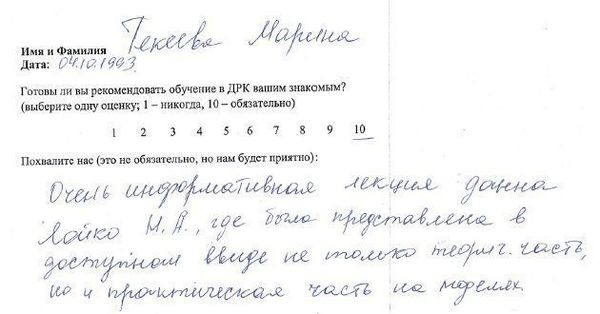 Имя и Фамилия Текеева Марина
Дата: 04.10.1993.
Готовы ли вы рекомендовать обучение в ДРК вашим знакомым?
(выберите одну оценку; 1 – никогда, 10 – обязательно)
1 2 3 4 5 6 7 8 9 10
Похвалите нас (это не обязательно, но нам будет приятно):
Очень информативная лекция данна
Лойко М.А., где была представлена в
доступном ввиде не только теорит. часть,
но и практическая часть на моделях.